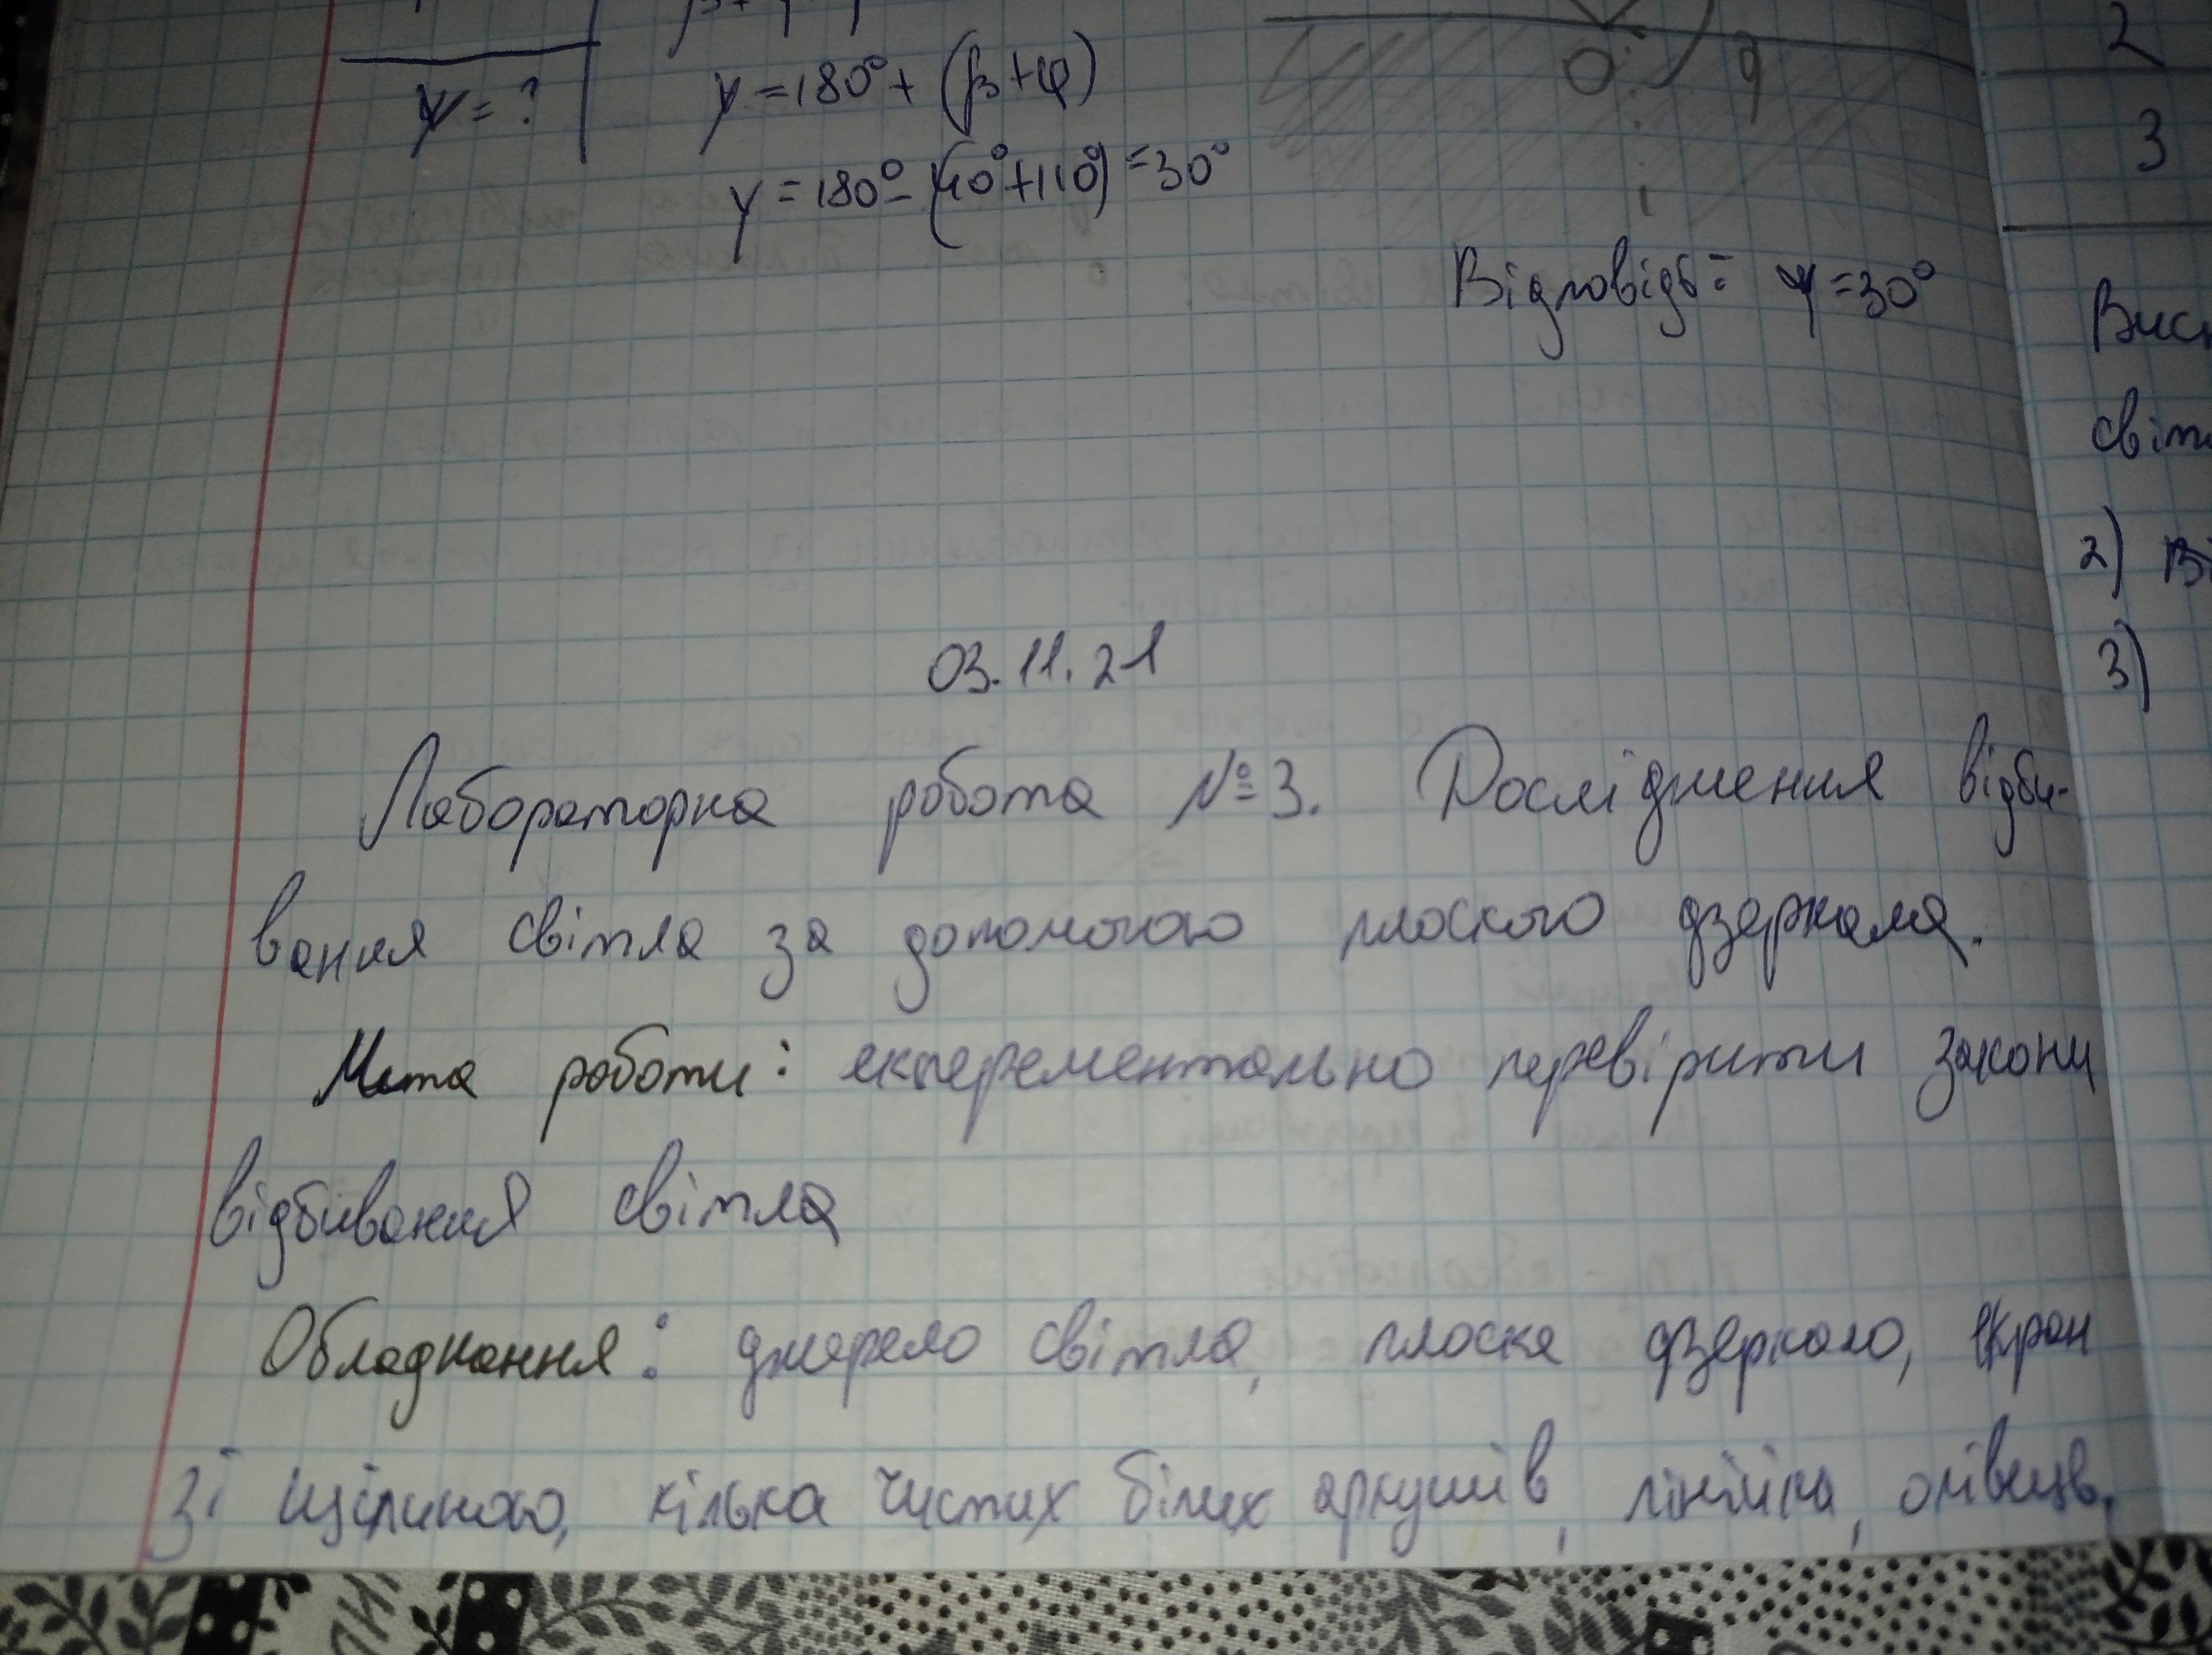 γ = ?
γ = 180° + (β + φ)
γ = 180° - (40° + 110°) = 30°
O
Відповідь: γ = 30°
03.11.21
Лабораторна робота №3. Дослідження відби-
вання світла за допомогою плоского дзеркала.
Мета роботи: експерементально перевірити закони
відбивання світла
Обладнання: джерело світла, плоске дзеркало, екран
зі щілиною, кілька чистих білих аркушів, лінійка, олівець,
2
3
2)
3)